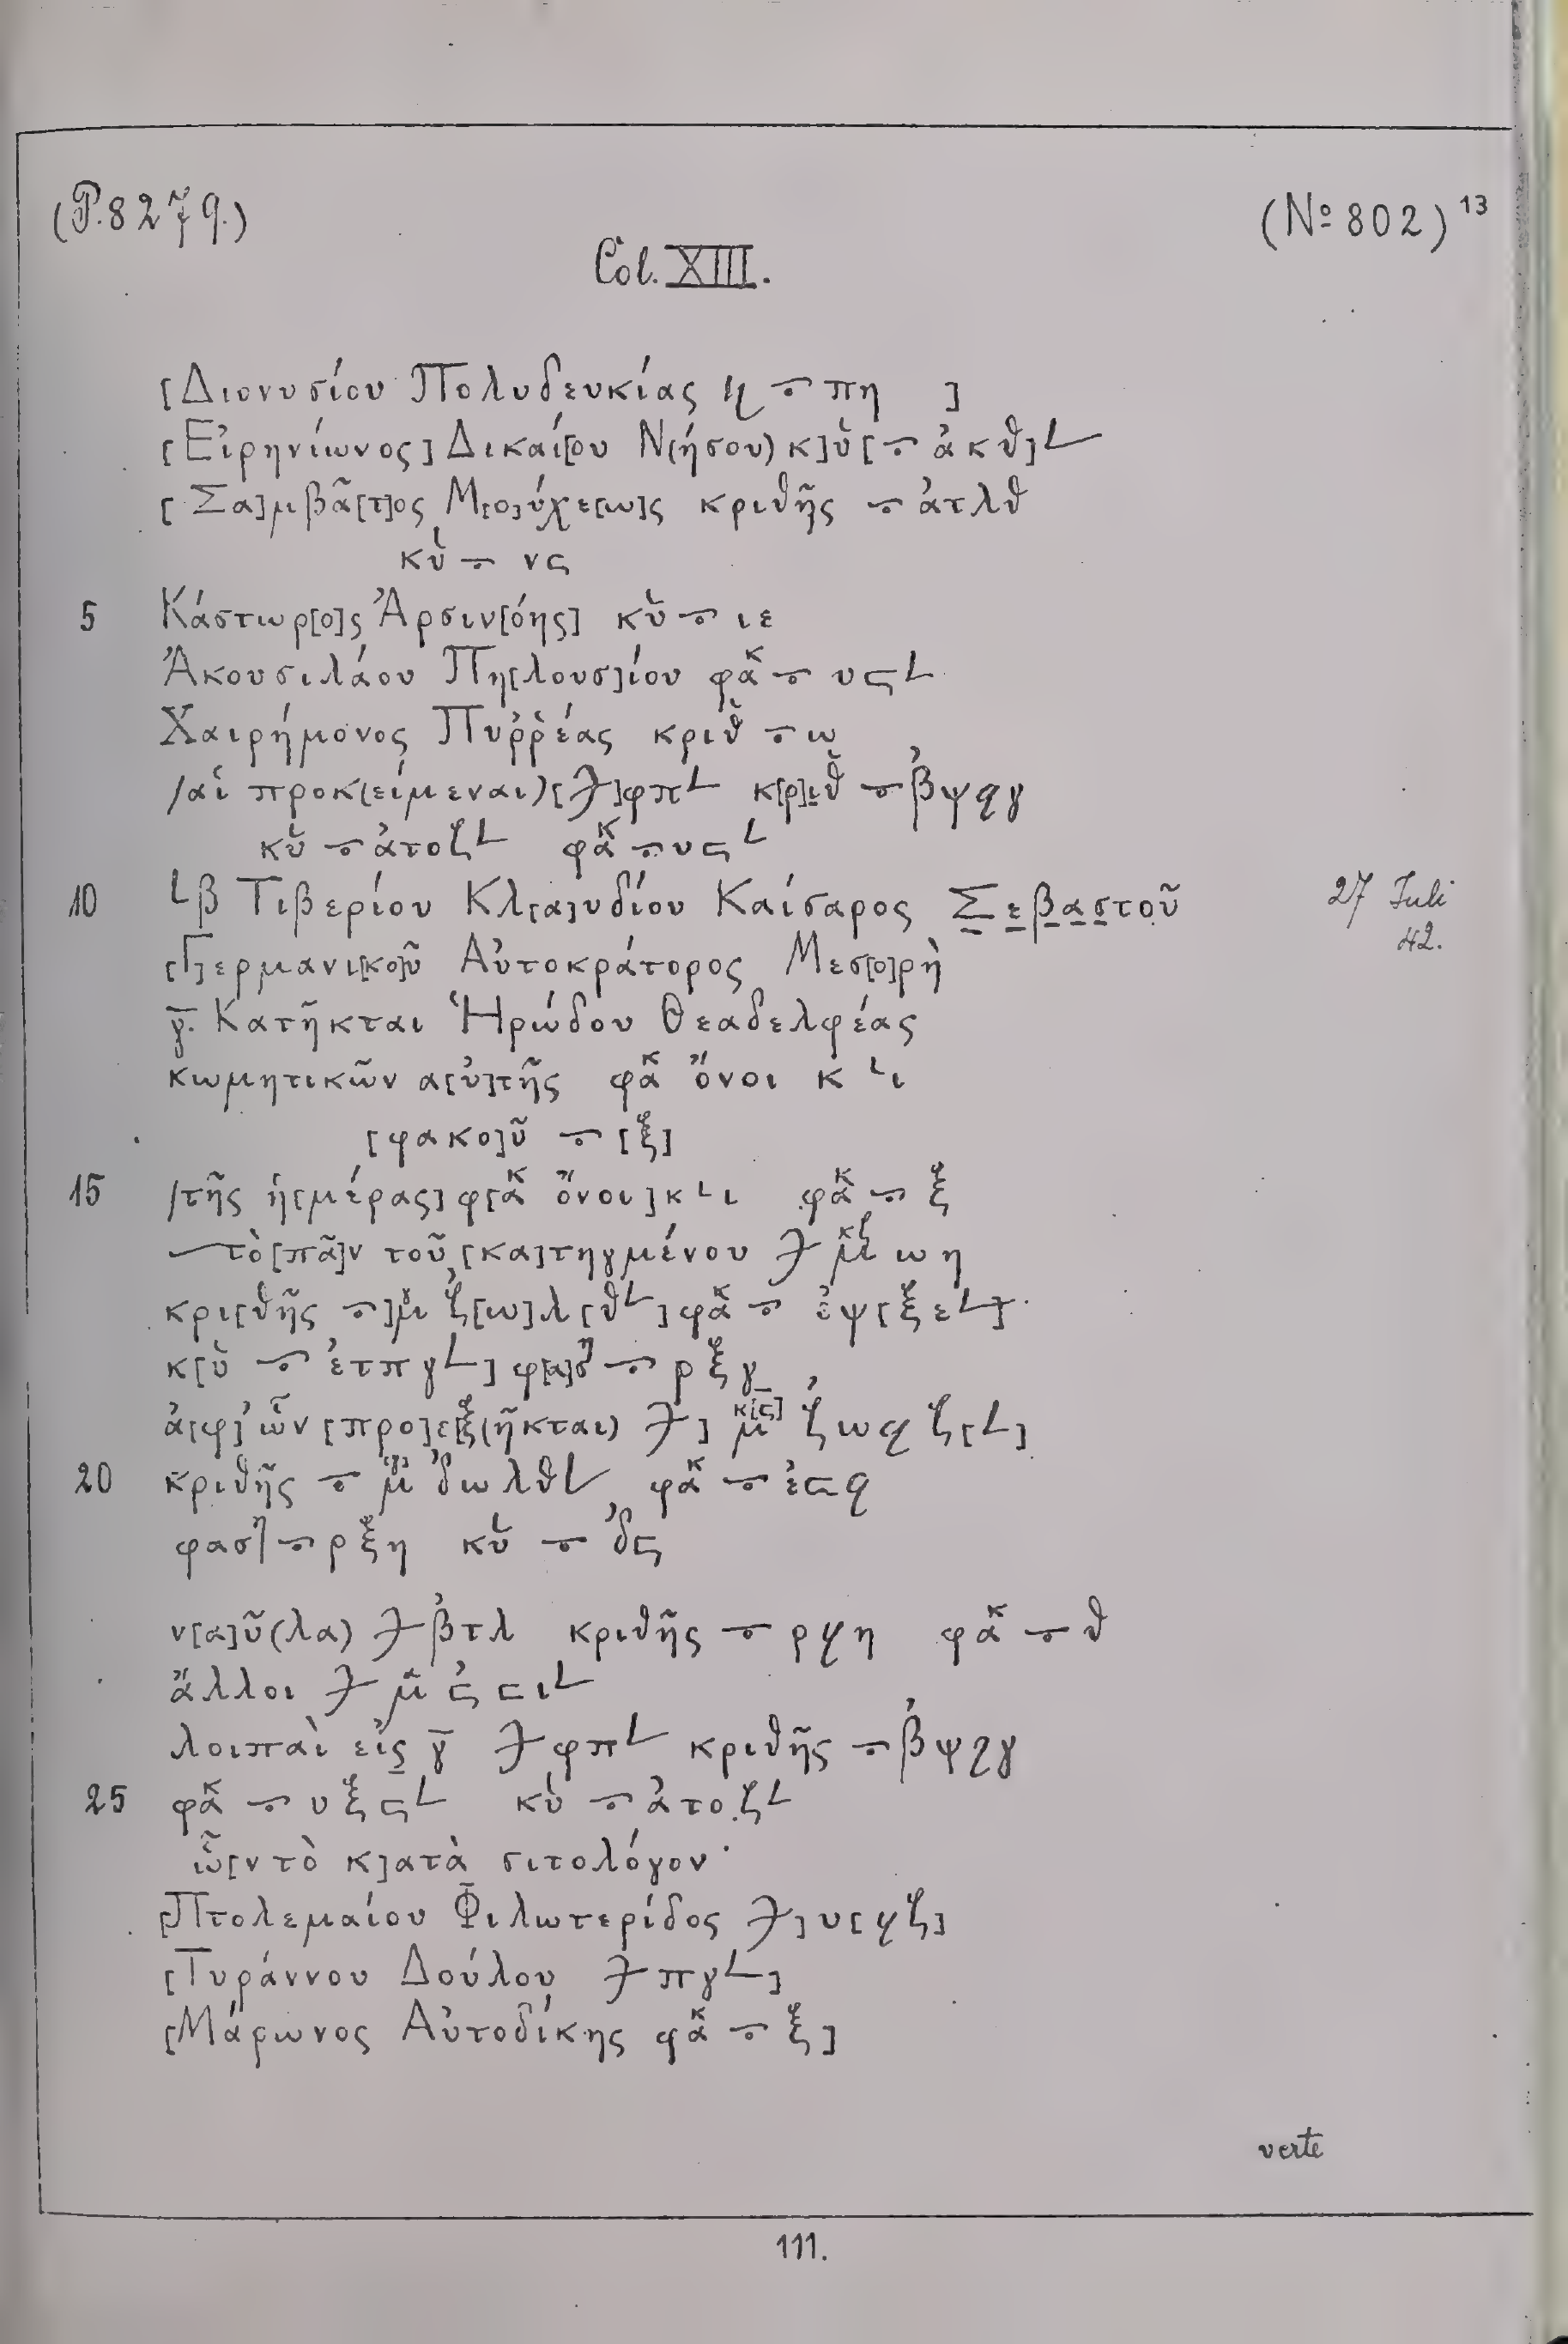 (P. 8279.)
(№ 802) 13
Col. XIII.
[Διονυσίου Πολυδευκίας κ ⨪ πη ]
[Εἰρηνίωνος] Δικαί[ου Ν(ήσου) κ]ῡ̀ [⨪ ἀκθ] L
[Σα]μβᾶ[τ]ος Μ[ο]ύχε[ω]ς κριθῆς ⨪ ἀτλθ
κῡ̀ ⨪ νϛ
5 Κάστωρ[ο]ς Ἀρσιν[όης] κῡ̀ ⨪ ιε
Ἀκουσιλάου Πη[λουσ]ίου φᾱκ ⨪ υϛ L
Χαιρήμονος Πυῤῥέας κριθ ⨪ ω
/αἱ προκ(είμεναι) [𐅾]φπ L κ[ρ]ιθ ⨪ βψϙγ
κῡ̀ ⨪ ἀτοζ L φᾱκ ⨪ υϛ L
10 L β Τιβερίου Κλ[α]υδίου Καίσαρος Σεβαστοῦ
27 Juli
42.
[Γ]ερμανι[κο]ῦ Αὐτοκράτορος Μεσ[ο]ρὴ
γ̄. Κατῆκται Ἡρώδου Θεαδελφέας
κωμητικῶν α[ὐ]τῆς φᾱκ ὄνοι κ L ι
[φακο]ῦ ⨪ [ξ]
15 /τῆς ἡ[μέρας] φ[ᾱκ ὄνοι] κ L ι φᾱκ ⨪ ξ
—τὸ [πᾶ]ν τοῦ [κα]τηγμένου 𐅾 μ̄κζ ωη
κρι[θῆς ⨪] μ̄γ ζ[ω]λ[θ L] φᾱκ ⨪ ἐψ[ξε L]
κ[ῡ̀ ⨪ ἐτπγ L] φ[α]ση ⨪ ρξγ
ἀ[φ]’ ὧν [προ]εξ(ῆκται) 𐅾] μ̄κ[ϛ] ζωϙζ[L]
20 κριθῆς ⨪ μ̄[γ] δωλθ L φᾱκ ⨪ ἐϲϙ
φαση ⨪ ρξη κῡ̀ ⨪ δϛ
ν[α]ῦ(λα) 𐅾 βτλ κριθῆς ⨪ ρϙη φᾱκ ⨪ θ
ἄλλοι 𐅾 μ̄α ϛϲι L
λοιπαὶ εἰς γ̄ 𐅾 φπ L κριθῆς ⨪ βψϙγ
25 φᾱκ ⨪ υξϛ L κῡ̀ ⨪ ἀτοζ L
ὧ[ν τὸ κ]ατὰ σιτολόγον·
[Πτολεμαίου Φιλωτερίδος 𐅾] υ[ϙζ]
[Τυράννου Δούλου 𐅾 πγ L]
[Μάρωνος Αὐτοδίκης φᾱκ ⨪ ξ]
verte
111.